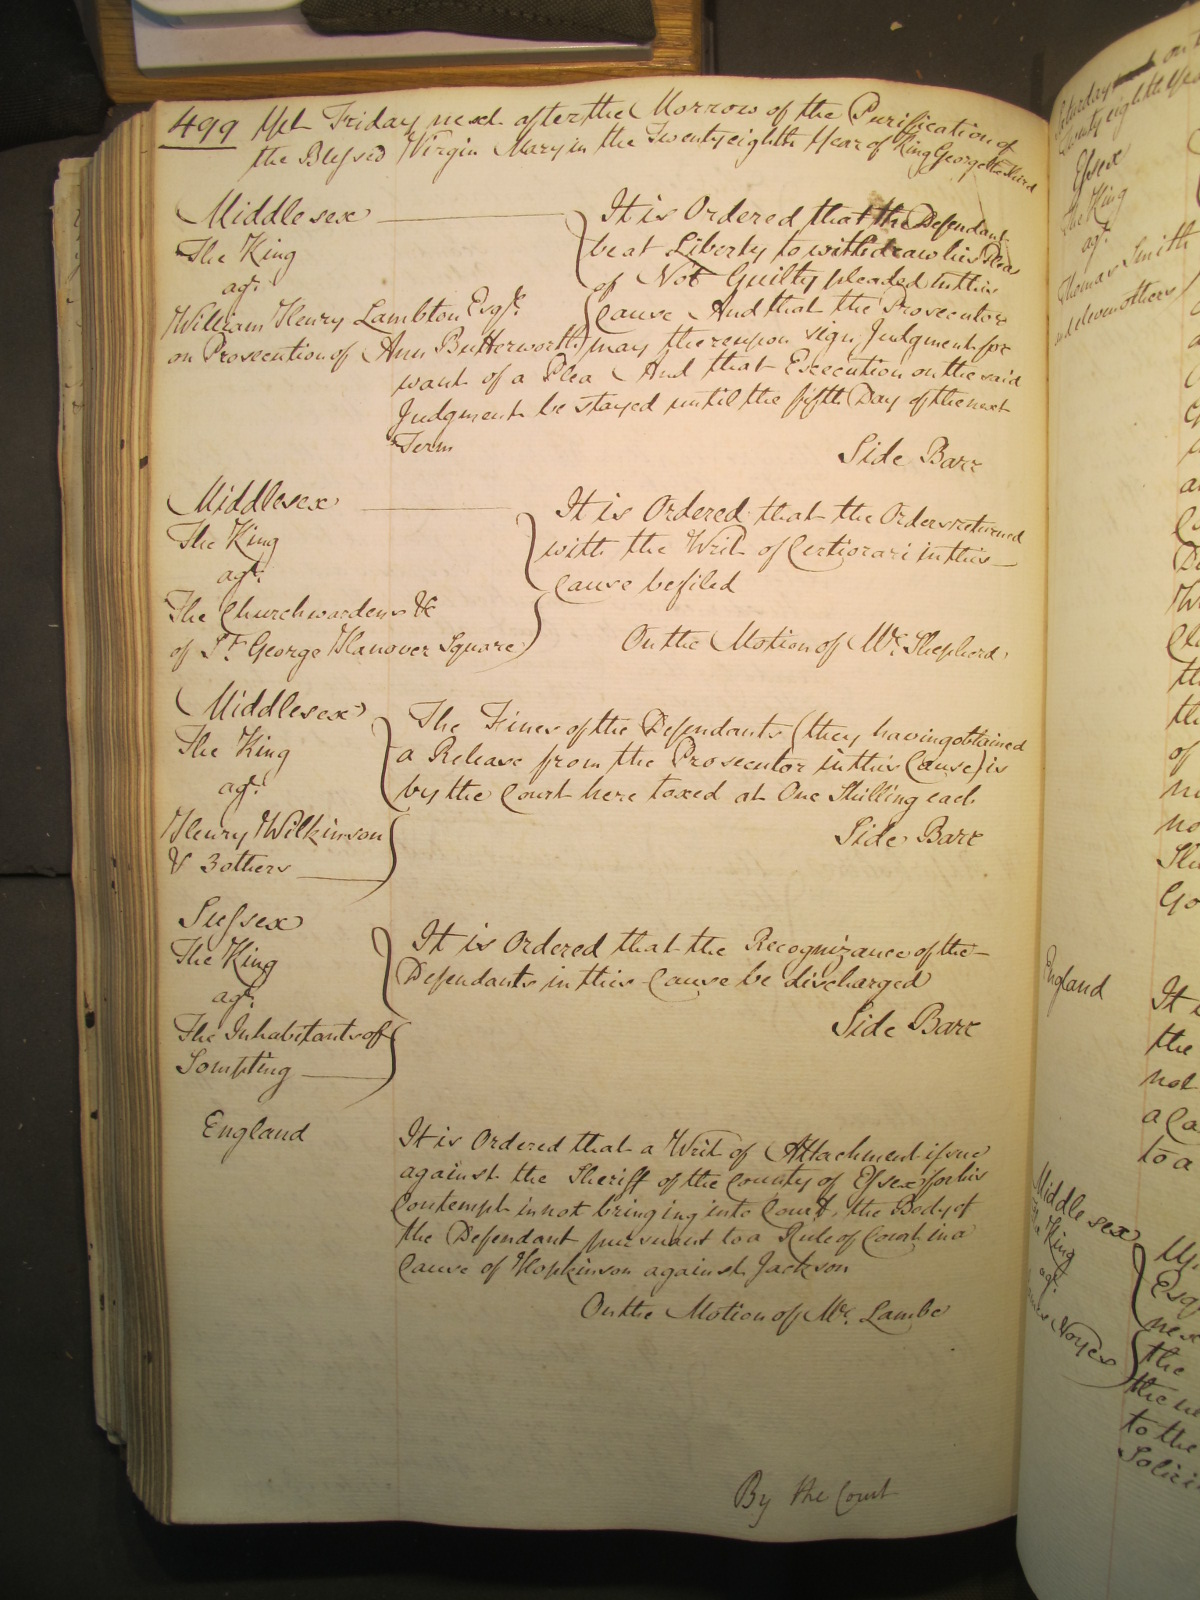 499 Yet Friday next after the Morrow of the Purification of
the Blessed Virgin Mary in the Twenty eighth Year of King George the third
Middlesex
The King
agt.
William Henry Lambton Esqr.
on Prosecution of Ann Butterworth
It is Ordered that the Defendant
be at Liberty to withdraw his Plea
of Not Guilty pleaded in this
Cause And that the Prosecutor
may thereupon sign Judgment for
want of a Plea And that Execution on the said
Judgment be stayed until the fifth Day of the next
Term
Side Barr
Middlesex
The King
agt.
The Churchwardens &c
of St. George Hanover Square
It is Ordered that the Orders returned
with the Writ of Certiorari in this
Cause be filed
On the Motion of Mr. Shepherd
Middlesex
The King
agt.
Henry Wilkinson
& 3 others
The Fines of the Defendants (they having obtained
a Release from the Prosecutor in this Cause) is
by the Court here taxed at One Shilling each
Side Barr
Sussex
The King
agt.
The Inhabitants of
Sompting
It is Ordered that the Recognizance of the
Defendants in this Cause be discharged
Side Barr
England
It is Ordered that a Writ of Attachment issue
against the Sheriff of the County of Essex for his
Contempt in not bringing into Court, the Body of
the Defendant pursuant to a Rule of Court in a
Cause of Hopkinson against Jackson
On the Motion of Mr. Lambe
By the Court
Saturday
Twenty eighth Year
Essex
The King
agt.
Thomas Smith
and eleven others
England
It
the
not
to a
Middlesex
The King
agt.
Noyes
Esq
next
the
the
to the